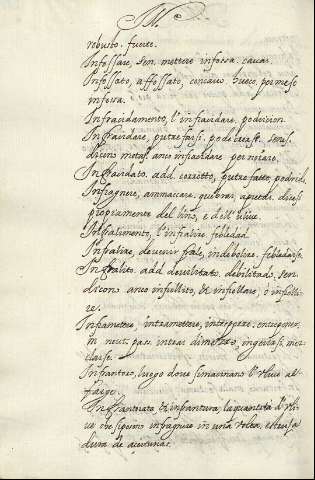 IN
robusto. fuerte.
Infossare, sen. mettere in fossa. cavar.
Infossato, affossato, concavo. hueco, poner se
in fossa.
Infracidamento, l'infracidare. podricion
Infracidare, putrefarsi. podrecerse.
divino metaf. anco infracidare per noiare.
Infracidato. add. corrotto, putrefatto, podrido.
Infragnere, ammaccare. quebrar, apretar. dicesi
propriamente del vino, e dell' ulive.
Infralimento, l'infralire. febledad.
Infralire, divenir frale, indebolire. febledarse.
Infralito. add. devilitato. debilitado. sen
dicono anco infollito, & infiellare, o infolli-
re.
Inframettere, intramettere, interporre. entreponer.
in neut. pas. intrar di mezzo, ingerirsi, mez
clarse.
Infrantoio, luogo dove si macinano l'ulive al
farage.
Infrantoiata & infrantura, la quantità d'uli
ve che si pono infragnere in una volta.
dura de azeitunas.